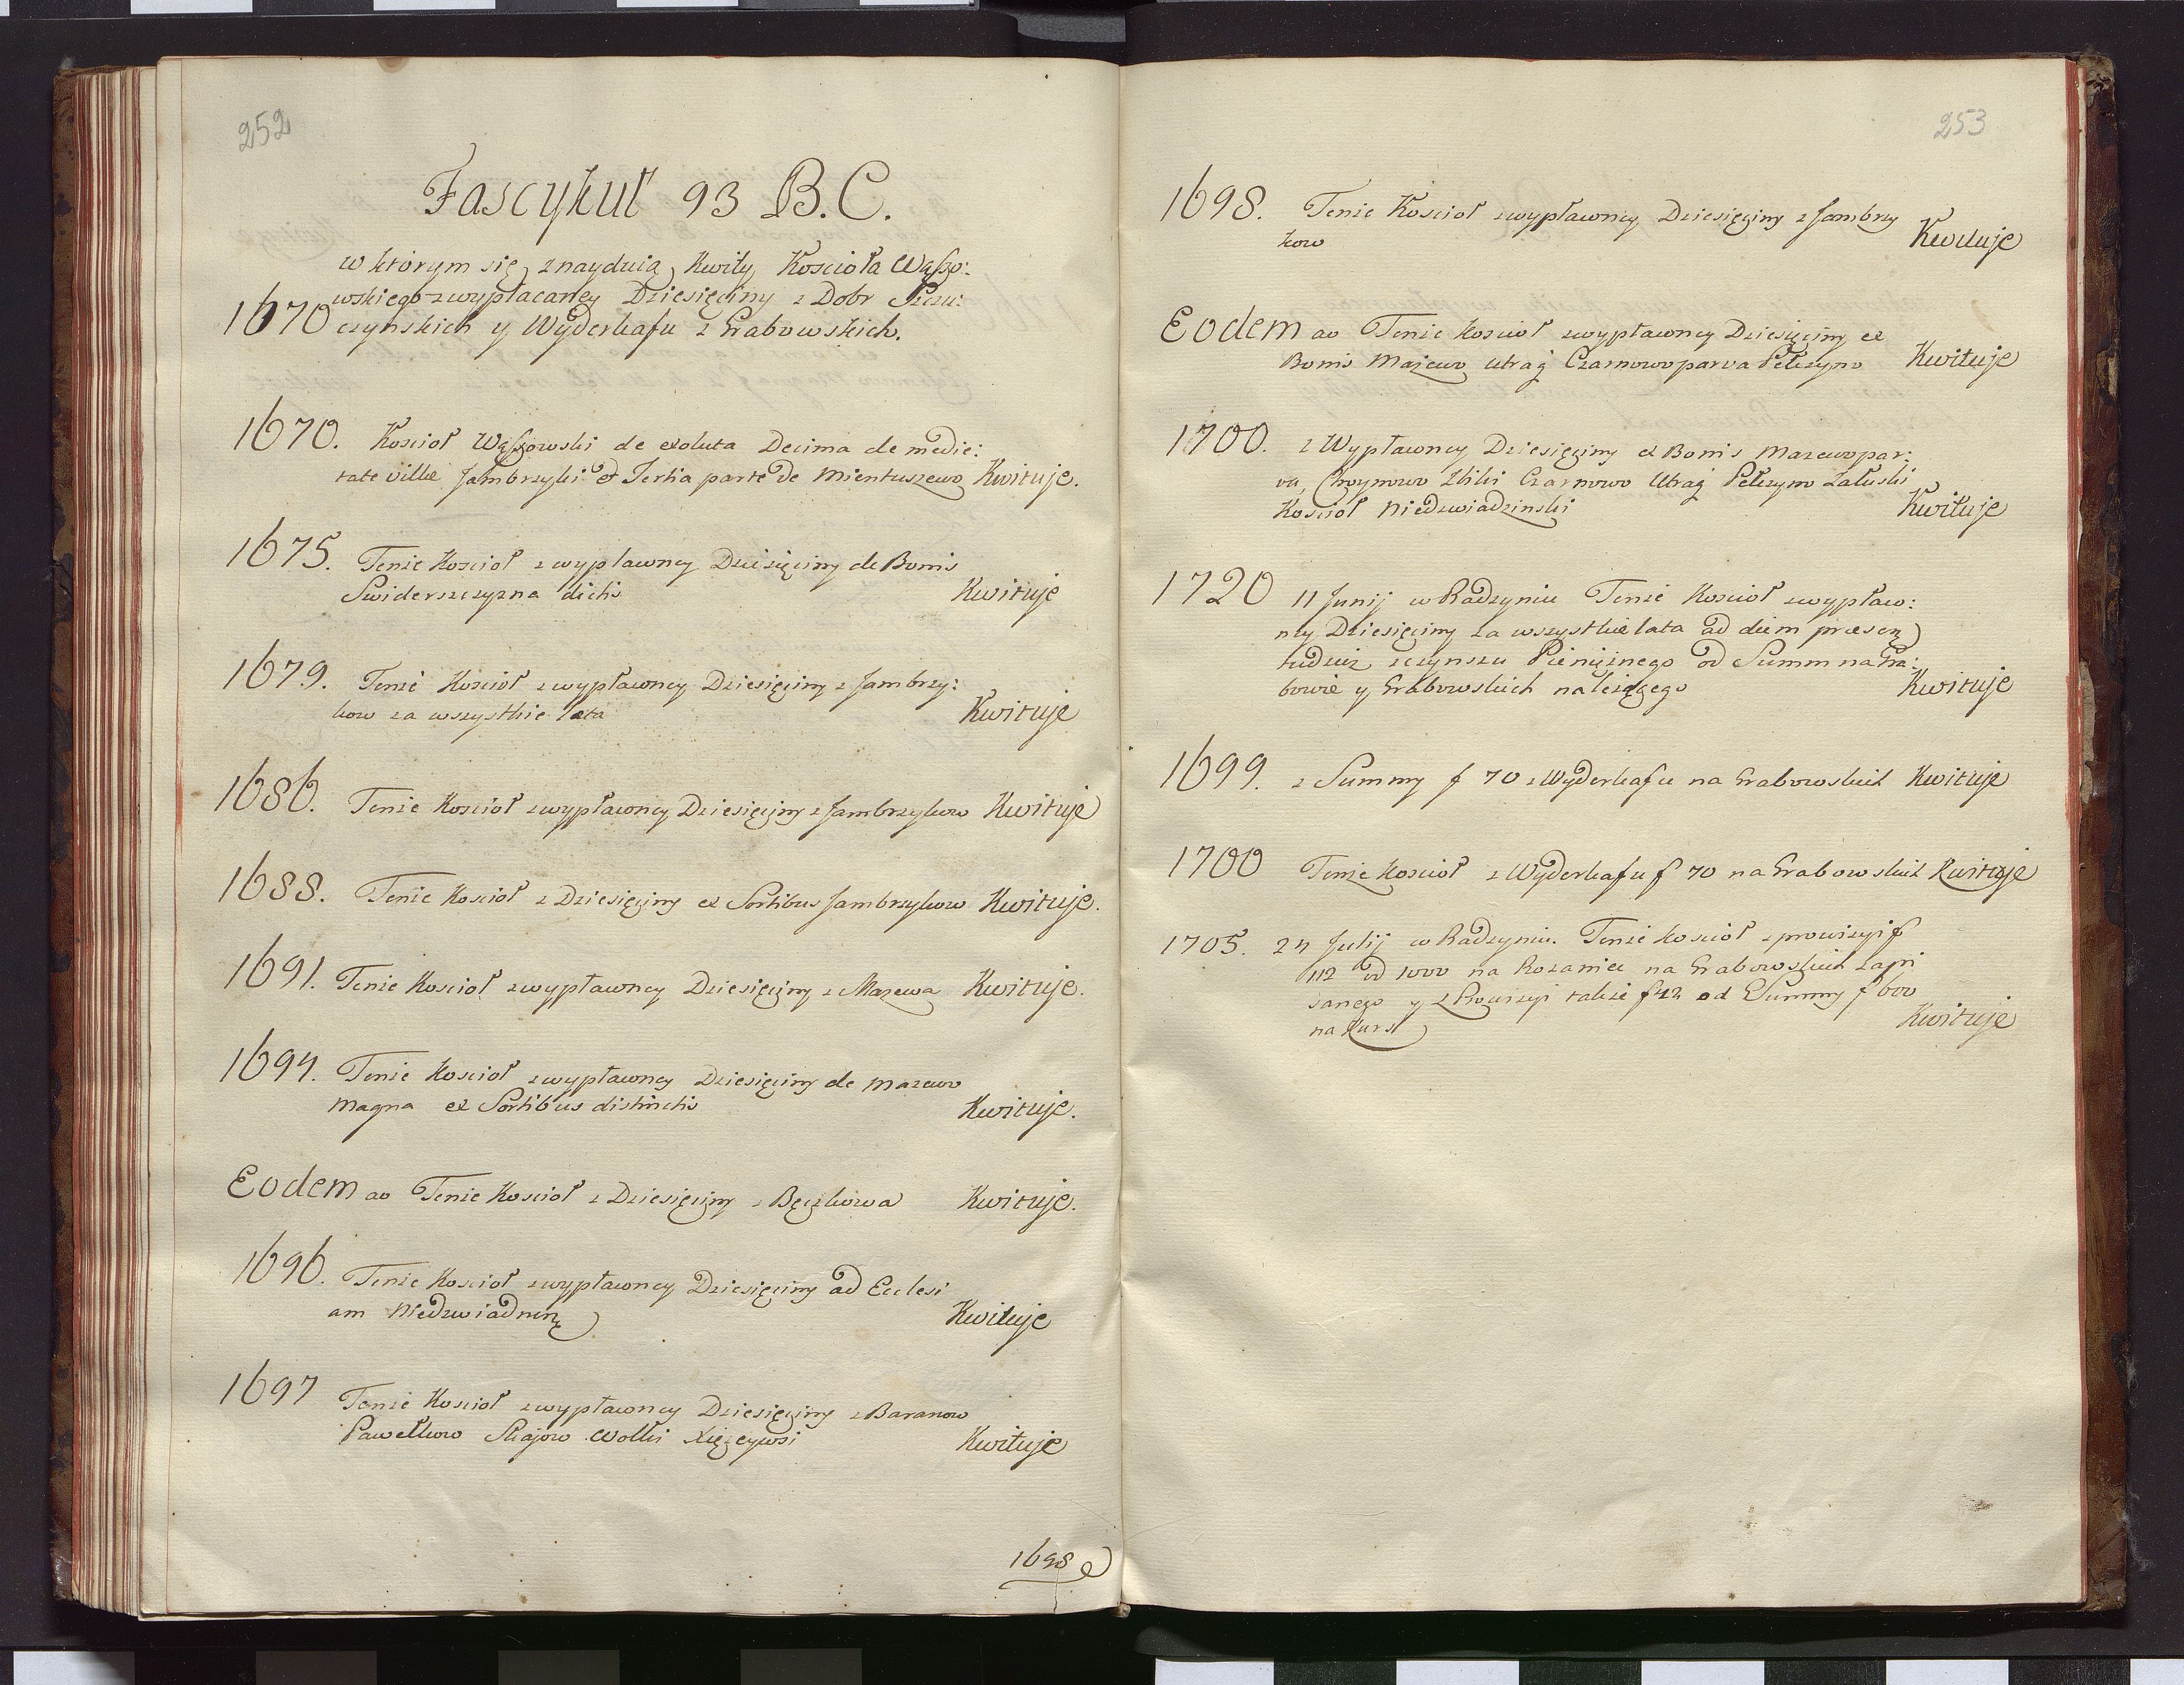 252
Fascykuł 93 B.C.
w którym się znayduią Kwity Kościoła Wąsso:
wskiego z wypłacaney Dziesięciny z Dobr Szczu:
1670 czynskich y Wyderkafu z Grabowskich.
1670. Kościoł Wąssowski de exoluta Decima de medie:
tate Villæ Jambrzyki et Tertia parte de Mientuszewo Kwituje.
1675. Tenże Kościoł z wypławney Dziesięciny de Bonis
Swiderszczyzna dictis Kwituje
1679. Tenże Kościoł z wypławney Dziesięciny z Jambrzy:
kow za wszystkie lata Kwituje
1686. Tenże Kościoł z wypławney Dziesięciny z Jambrzykow Kwituje
1688. Tenże Kościoł z Dziesięciny ex Sortibus Jambrzykow Kwituje.
1691. Tenże Kościoł z wypławney Dziesięciny z Mazewa Kwituje.
1694. Tenże Kościoł z wypławney Dziesięciny de Mazewo
Magna ex Sortibus distinctis Kwituje.
Eodem ao Tenże Kościoł z Dziesięciny z Bęczkowa Kwituje.
1696. Tenże Kościoł z wypławney Dziesięciny ad Eclesi
am Kwituje
1697 Tenże Kościoł z wypławney Dziesięciny z Baranow
Pawełkow Skajow Wolki Xiężeywsi Kwituje
1698
253
1698. Tenże Kościoł z wypławney Dziesięciny z Jambrzy
kow Kwituje
Eodem ao Tenże Kościoł z wypławney Dziesięciny ex
Bonis Majewo utraq Czarnowo parva Pełczyno Kwituje
1700. z Wypławney Dziesięciny ex Bonis Mazewo par:
va, Czarnowo Utraq Pełczyno Załuski
Kościoł Niedzwiadzinski Kwituje
1720 11 Junij w Radzyniu Tenże Kościoł z wypław:
ney Dziesięciny za wszystkie lata ad diem præsen
tudzież z czynszu Pieniężnego od Summ na Gra:
bowie y Grabowskich należącego Kwituje
1699. z Summy f 70 z Wyderkafu na Grabowskich Kwituje
1700 Tenże Kościoł z Wyderkafu f 70 na Grabowskich Kwituje
1705. 24 Julij w Radzyniu. Tenże Kościoł z prowizyi f
112 od 1000 na Rozaniec na Grabowskich zapi
sanego y z Prowizyi także f 42 od Summy f 600
na Kwituje